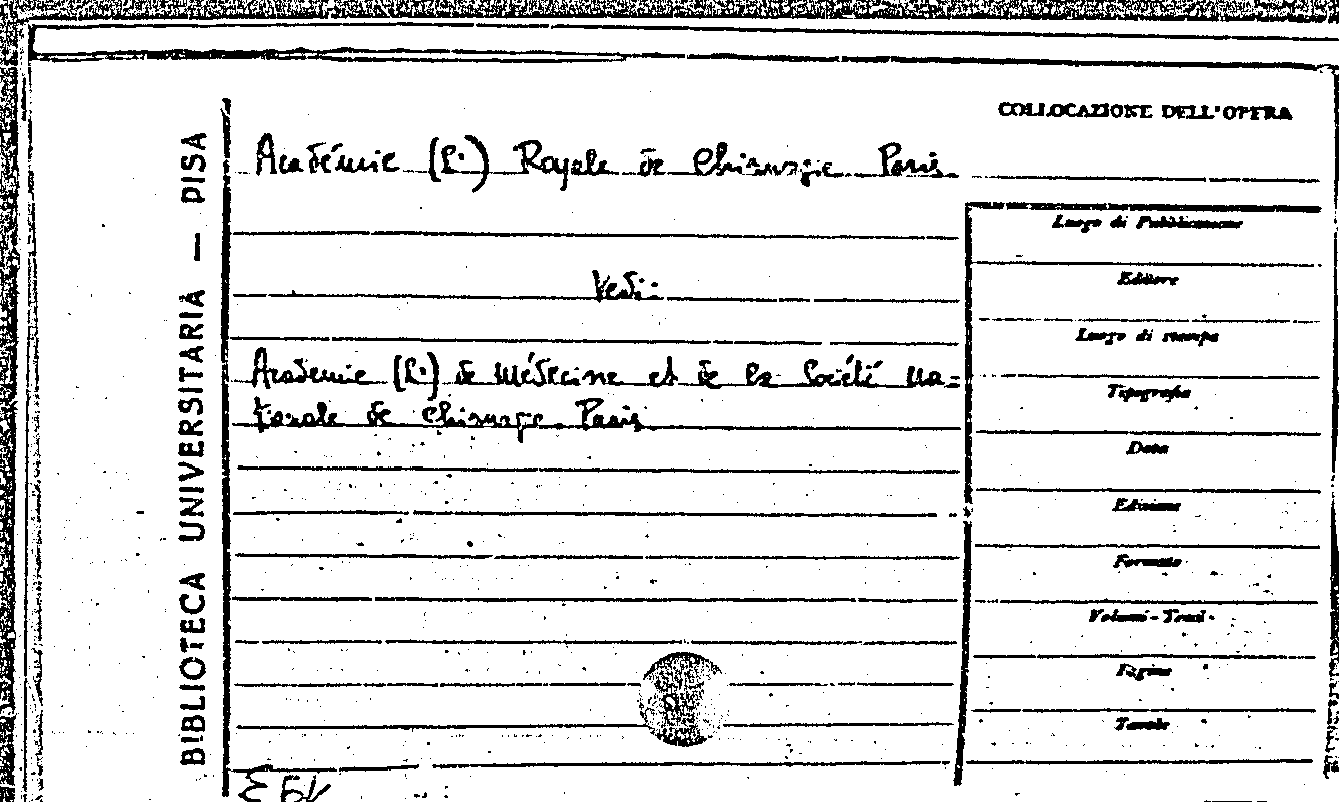 BIBLIOTECA UNIVERSITARIA — PISA
COLLOCAZIONE DELL'OPERA
Académie (L') Royale de Chirurgie Paris.
Vedi:
Academie (L') de Médecine et de la Société na=
tionale de Chirurgie. Paris.
Luogo di Pubblicazione
Editore
Luogo di stampa
Tipografia
Data
Edizione
Formato
Volumi - Tomi
Pagine
Tavole